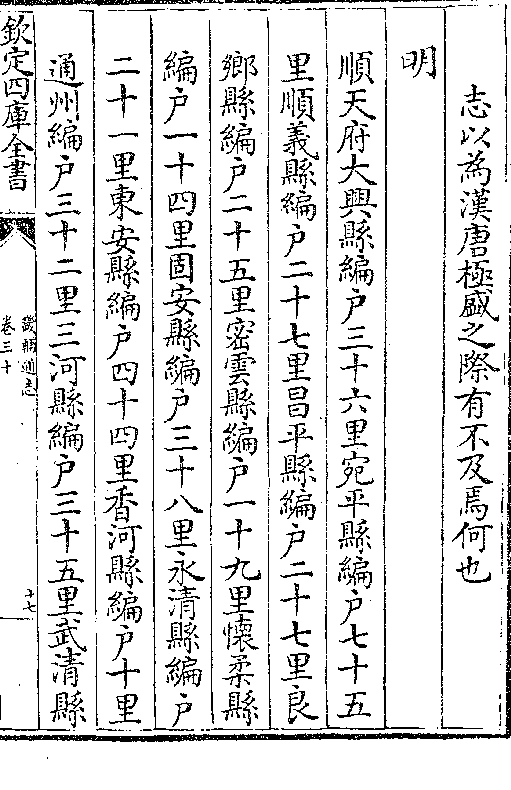 志以為漢唐極盛之際有不及焉何也
明
順天府大興縣編户三十六里宛平縣編户七十五
里順義縣編户二十七里昌平縣編户二十七里良
鄉縣編户二十五里密雲縣編户一十九里懷柔縣
編户一十四里固安縣編户三十八里永清縣編户
二十一里東安縣編户四十四里香河縣編户十里
通州編户三十二里三河縣編户三十五里武清縣
欽定四庫全書
畿輔通志
卷三十
十七